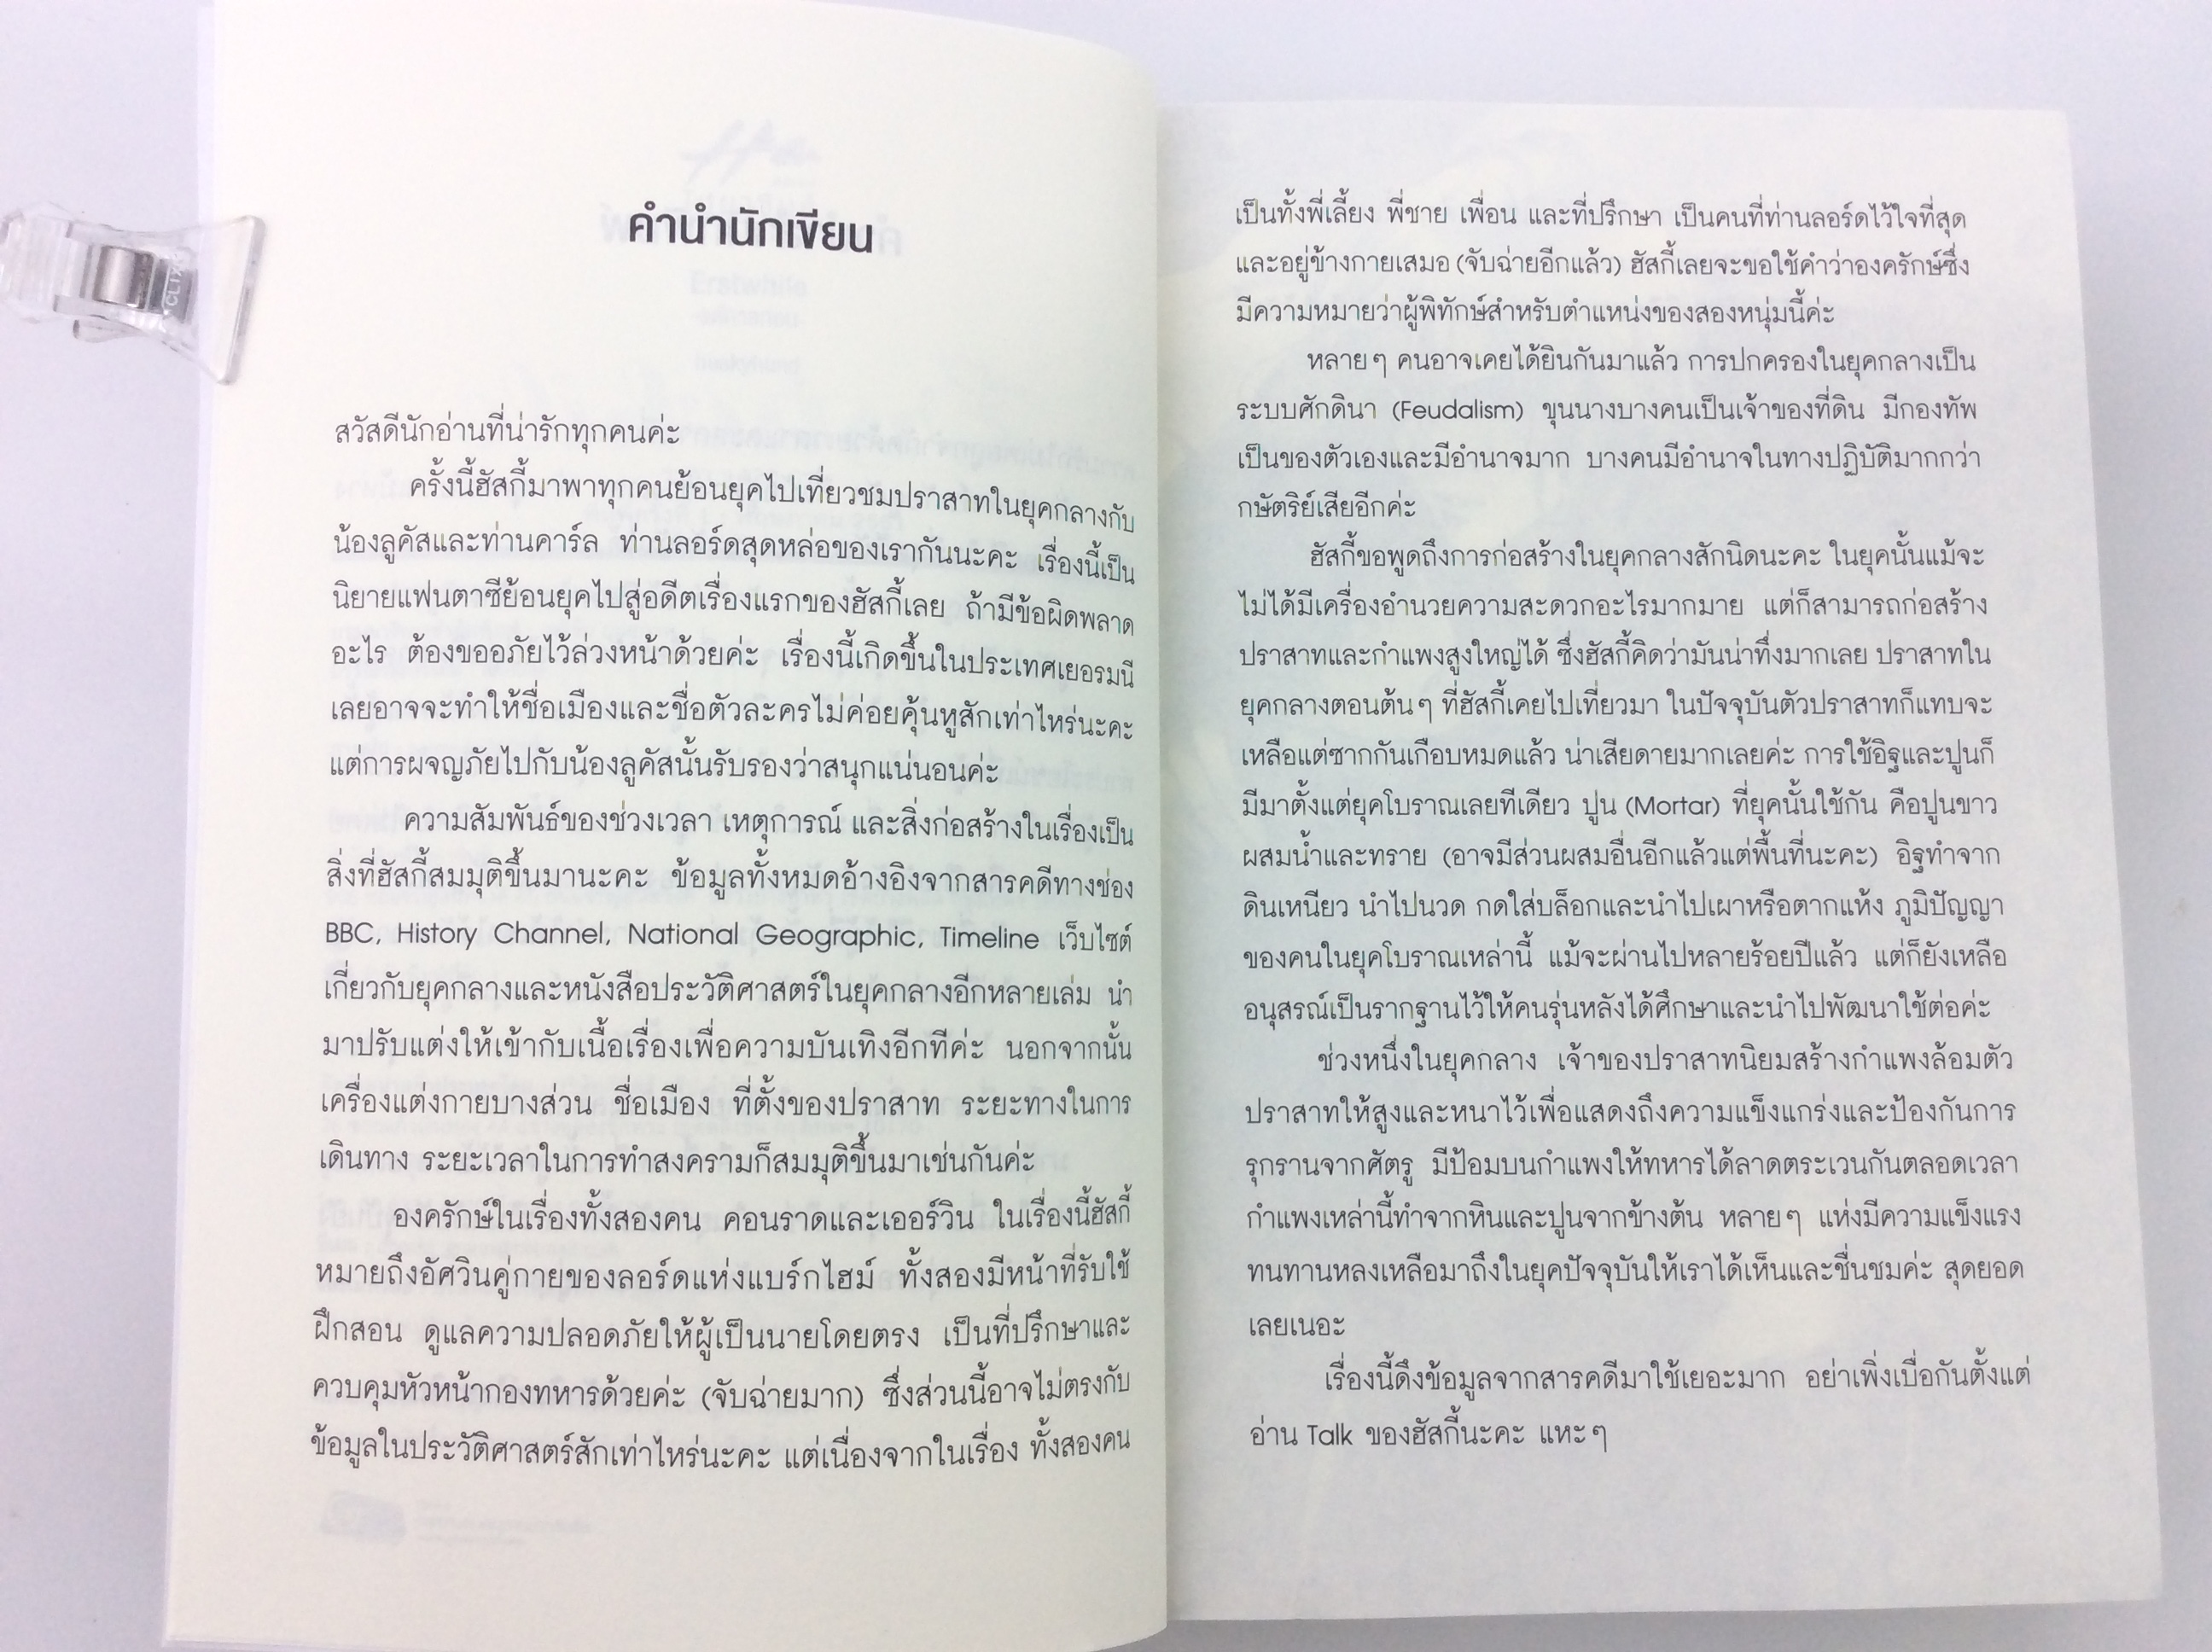 คำนำนักเขียน
สวัสดีนักอ่านที่น่ารักทุกคนค่ะ
ครั้งนี้ฮัสกี้มาพาทุกคนย้อนยุคไปเที่ยวชมปราสาทในยุคกลางกับ
น้องลูคัสและท่านคาร์ล ท่านลอร์ดสุดหล่อของเรากันนะคะ เรื่องนี้เป็น
นิยายแฟนตาซีย้อนยุคไปสู่อดีตเรื่องแรกของฮัสกี้เลย ถ้ามีข้อผิดพลาด
อะไร ต้องขออภัยไว้ล่วงหน้าด้วยค่ะ เรื่องนี้เกิดขึ้นในประเทศเยอรมนี
เลยอาจจะทำให้ชื่อเมืองและชื่อตัวละครไม่ค่อยคุ้นหูสักเท่าไหร่นะคะ
แต่การผจญภัยไปกับน้องลูคัสนั้นรับรองว่าสนุกแน่นอนค่ะ
ความสัมพันธ์ของช่วงเวลา เหตุการณ์ และสิ่งก่อสร้างในเรื่องเป็น
สิ่งที่ฮัสกี้สมมุติขึ้นมานะคะ ข้อมูลทั้งหมดอ้างอิงจากสารคดีทางช่อง
BBC, History Channel, National Geographic, Timeline เว็บไซต์
เกี่ยวกับยุคกลางและหนังสือประวัติศาสตร์ในยุคกลางอีกหลายเล่ม นำ
มาปรับแต่งให้เข้ากับเนื้อเรื่องเพื่อความบันเทิงอีกทีค่ะ นอกจากนั้น
เครื่องแต่งกายบางส่วน ชื่อเมือง ที่ตั้งของปราสาท ระยะทางในการ
เดินทาง ระยะเวลาในการทำสงครามก็สมมุติขึ้นมาเช่นกันค่ะ
องครักษ์ในเรื่องทั้งสองคน คอนราดและเออร์วิน ในเรื่องนี้ฮัสกี้
หมายถึงอัศวินคู่กายของลอร์ดแห่งแบร์กไฮม์ ทั้งสองมีหน้าที่รับใช้
ฝึกสอน ดูแลความปลอดภัยให้ผู้เป็นนายโดยตรง เป็นที่ปรึกษาและ
ควบคุมหัวหน้ากองทหารด้วยค่ะ (จับฉ่ายมาก) ซึ่งส่วนนี้อาจไม่ตรงกับ
ข้อมูลในประวัติศาสตร์สักเท่าไหร่นะคะ แต่เนื่องจากในเรื่อง ทั้งสองคน
เป็นทั้งพี่เลี้ยง พี่ชาย เพื่อน และที่ปรึกษา เป็นคนที่ท่านลอร์ดไว้ใจที่สุด
และอยู่ข้างกายเสมอ (จับฉ่ายอีกแล้ว) ฮัสกี้เลยจะขอใช้คำว่าองครักษ์ซึ่ง
มีความหมายว่าผู้พิทักษ์สำหรับตำแหน่งของสองหนุ่มนี้ค่ะ
หลายๆ คนอาจเคยได้ยินกันมาแล้ว การปกครองในยุคกลางเป็น
ระบบศักดินา (Feudalism) ขุนนางบางคนเป็นเจ้าของที่ดิน มีกองทัพ
เป็นของตัวเองและมีอำนาจมาก บางคนมีอำนาจในทางปฏิบัติมากกว่า
กษัตริย์เสียอีกค่ะ
ฮัสกี้ขอพูดถึงการก่อสร้างในยุคกลางสักนิดนะคะ ในยุคนั้นแม้จะ
ไม่ได้มีเครื่องอำนวยความสะดวกอะไรมากมาย แต่ก็สามารถก่อสร้าง
ปราสาทและกำแพงสูงใหญ่ได้ ซึ่งฮัสกี้คิดว่ามันน่าทึ่งมากเลย ปราสาทใน
ยุคกลางตอนต้นๆ ที่ฮัสกี้เคยไปเที่ยวมา ในปัจจุบันตัวปราสาทก็แทบจะ
เหลือแต่ซากกันเกือบหมดแล้ว น่าเสียดายมากเลยค่ะ การใช้อิฐและปูนก็
มีมาตั้งแต่ยุคโบราณเลยทีเดียว ปูน (Mortar) ที่ยุคนั้นใช้กัน คือปูนขาว
ผสมน้ำและทราย (อาจมีส่วนผสมอื่นอีกแล้วแต่พื้นที่นะคะ) อิฐทำจาก
ดินเหนียว นำไปนวด กดใส่บล็อกและนำไปเผาหรือตากแห้ง ภูมิปัญญา
ของคนในยุคโบราณเหล่านี้ แม้จะผ่านไปหลายร้อยปีแล้ว แต่ก็ยังเหลือ
อนุสรณ์เป็นรากฐานไว้ให้คนรุ่นหลังได้ศึกษาและนำไปพัฒนาใช้ต่อค่ะ
ช่วงหนึ่งในยุคกลาง เจ้าของปราสาทนิยมสร้างกำแพงล้อมตัว
ปราสาทให้สูงและหนาไว้เพื่อแสดงถึงความแข็งแกร่งและป้องกันการ
รุกรานจากศัตรู มีป้อมบนกำแพงให้ทหารได้ลาดตระเวนกันตลอดเวลา
กำแพงเหล่านี้ทำจากหินและปูนจากข้างต้น หลายๆ แห่งมีความแข็งแรง
ทนทานหลงเหลือมาถึงในยุคปัจจุบันให้เราได้เห็นและชื่นชมค่ะ สุดยอด
เลยเนอะ
เรื่องนี้ดึงข้อมูลจากสารคดีมาใช้เยอะมาก อย่าเพิ่งเบื่อกันตั้งแต่
อ่าน Talk ของฮัสกี้นะคะ แหะๆ